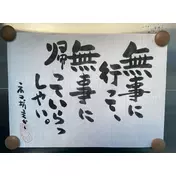 無事に
行って、
無事に
帰っていらっ
しゃい。